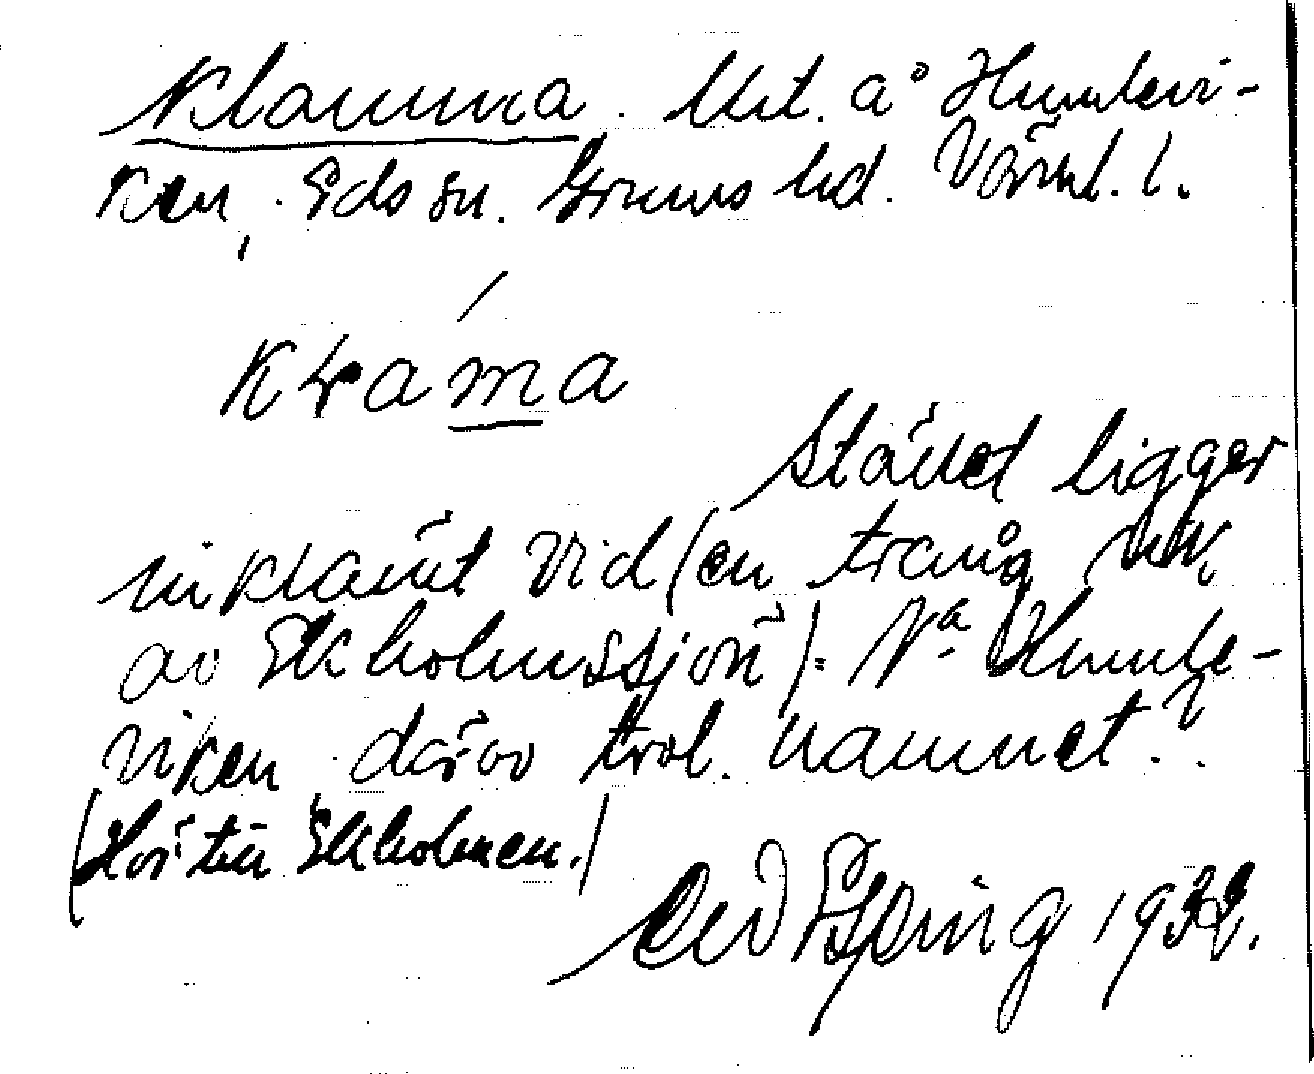 Klamma. Utt. å Humlevi-
ken, Eds sn. Grums hd. Värml. l.
Kláma
Stället ligger
inklämt vid (en trång vik
av Ekholmssjön). Na Humle-
viken därav trol. namnet?
(Hör till Ekholmen.)
1932.